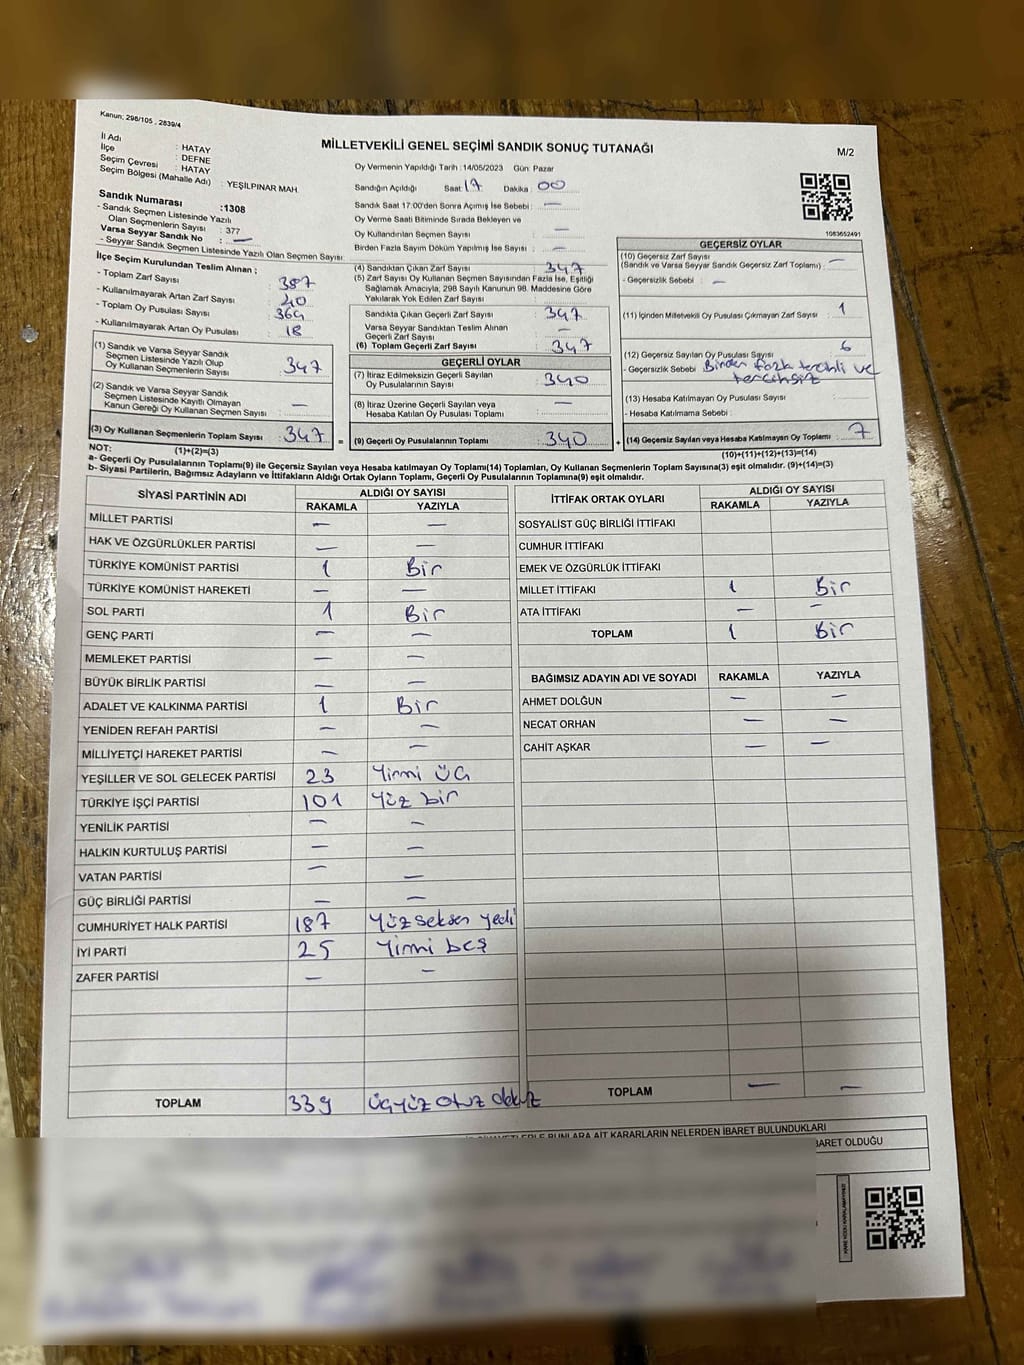 Kanun; 298/105 - 2839/4
İl Adı : HATAY
İlçe : DEFNE
Seçim Çevresi : HATAY
Seçim Bölgesi (Mahalle Adı) : YEŞİLPINAR MAH.
MİLLETVEKİLİ GENEL SEÇİMİ SANDIK SONUÇ TUTANAĞI
M/2
Sandık Numarası :1308
- Sandık Seçmen Listesinde Yazılı
Olan Seçmenlerin Sayısı : 377
Varsa Seyyar Sandık No : —
- Seyyar Sandık Seçmen Listesinde Yazılı Olan Seçmen Sayısı
Oy Vermenin Yapıldığı Tarih :14/05/2023 Gün: Pazar
Sandığın Açıldığı Saat: 17 Dakika : 00
Sandık Saat 17:00'den Sonra Açımış İse Sebebi : —
Oy Verme Saati Bitiminde Sırada Bekleyen ve
Oy Kullandırılan Seçmen Sayısı : —
Birden Fazla Sayım Döküm Yapılmış İse Sayısı : —
1083652491
İlçe Seçim Kurulundan Teslim Alınan ;
- Toplam Zarf Sayısı : 387
- Kullanılmayarak Artan Zarf Sayısı : 40
- Toplam Oy Pusulası Sayısı : 364
- Kullanılmayarak Artan Oy Pusulası : 18
(1) Sandık ve Varsa Seyyar Sandık
Seçmen Listesinde Yazılı Olup
Oy Kullanan Seçmenlerin Sayısı : 347
(2) Sandık ve Varsa Seyyar Sandık
Seçmen Listesinde Kayıtlı Olmayan
Kanun Gereği Oy Kullanan Seçmen Sayısı : —
(3) Oy Kullanan Seçmenlerin Toplam Sayısı : 347
(1)+(2)=(3)
(4) Sandıktan Çıkan Zarf Sayısı : 347
(5) Zarf Sayısı Oy Kullanan Seçmen Sayısından Fazla İse, Eşitliği
Sağlamak Amacıyla; 298 Sayılı Kanunun 98. Maddesine Göre
Yakılarak Yok Edilen Zarf Sayısı :
Sandıkta Çıkan Geçerli Zarf Sayısı : 347
Varsa Seyyar Sandıktan Teslim Alınan
Geçerli Zarf Sayısı : —
(6) Toplam Geçerli Zarf Sayısı : 347
GEÇERLİ OYLAR
(7) İtiraz Edilmeksizin Geçerli Sayılan
Oy Pusulalarının Sayısı : 340
(8) İtiraz Üzerine Geçerli Sayılan veya
Hesaba Katılan Oy Pusulası Toplamı : —
= (9) Geçerli Oy Pusulalarının Toplamı : 340
GEÇERSİZ OYLAR
(10) Geçersiz Zarf Sayısı
(Sandık ve Varsa Seyyar Sandık Geçersiz Zarf Toplamı) : —
- Geçersizlik Sebebi : —
(11) İçinden Milletvekili Oy Pusulası Çıkmayan Zarf Sayısı : 1
(12) Geçersiz Sayılan Oy Pusulası Sayısı : 6
- Geçersizlik Sebebi Birden fazla tercihli ve
tercihsiz
(13) Hesaba Katılmayan Oy Pusulası Sayısı :
- Hesaba Katılmama Sebebi :
+ (14) Geçersiz Sayılan veya Hesaba Katılmayan Oy Toplamı : 7
(10)+(11)+(12)+(13)=(14)
NOT:
a- Geçerli Oy Pusulalarının Toplamı(9) ile Geçersiz Sayılan veya Hesaba katılmayan Oy Toplamı(14) Toplamları, Oy Kullanan Seçmenlerin Toplam Sayısına(3) eşit olmalıdır. (9)+(14)=(3)
b- Siyasi Partilerin, Bağımsız Adayların ve İttifakların Aldığı Ortak Oyların Toplamı, Geçerli Oy Pusulalarının Toplamına(9) eşit olmalıdır.
SİYASİ PARTİNİN ADI ALDIĞI OY SAYISI
RAKAMLA YAZIYLA
MİLLET PARTİSİ — —
HAK VE ÖZGÜRLÜKLER PARTİSİ — —
TÜRKİYE KOMÜNİST PARTİSİ 1 Bir
TÜRKİYE KOMÜNİST HAREKETİ — —
SOL PARTİ 1 Bir
GENÇ PARTİ — —
MEMLEKET PARTİSİ — —
BÜYÜK BİRLİK PARTİSİ — —
ADALET VE KALKINMA PARTİSİ 1 Bir
YENİDEN REFAH PARTİSİ — —
MİLLİYETÇİ HAREKET PARTİSİ — —
YEŞİLLER VE SOL GELECEK PARTİSİ 23 Yirmi üç
TÜRKİYE İŞÇİ PARTİSİ 101 Yüz bir
YENİLİK PARTİSİ — —
HALKIN KURTULUŞ PARTİSİ — —
VATAN PARTİSİ — —
GÜÇ BİRLİĞİ PARTİSİ — —
CUMHURİYET HALK PARTİSİ 187 Yüz seksen yedi
İYİ PARTİ 25 Yirmi beş
ZAFER PARTİSİ — —
TOPLAM 339 üçyüz otuz dokuz
İTTİFAK ORTAK OYLARI ALDIĞI OY SAYISI
RAKAMLA YAZIYLA
SOSYALİST GÜÇ BİRLİĞİ İTTİFAKI
CUMHUR İTTİFAKI
EMEK VE ÖZGÜRLÜK İTTİFAKI
MİLLET İTTİFAKI 1 Bir
ATA İTTİFAKI — —
TOPLAM 1 Bir
BAĞIMSIZ ADAYIN ADI VE SOYADI RAKAMLA YAZIYLA
AHMET DOLĞUN — —
NECAT ORHAN — —
CAHİT AŞKAR — —
TOPLAM — —
BUNLARA AİT KARARLARIN NELERDEN İBARET BULUNDUKLARI
İBARET OLDUĞU